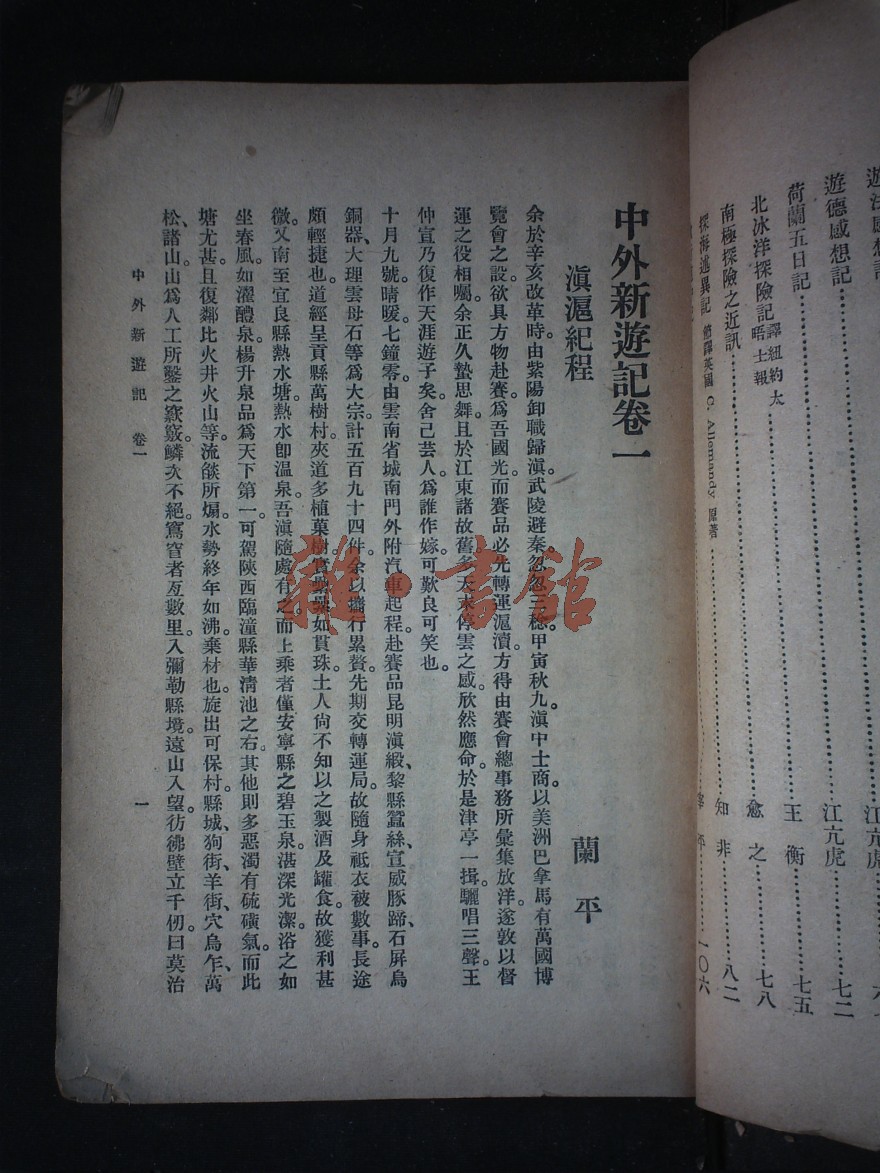 遊德感想記……江亢虎……七二
荷蘭五日記……王衡……七五
北冰洋探險記譯紐約太晤士報……愈之……七八
南極探險之近訊……知非……八二
探海述異記 節譯英國 C. Allemandy 原著……一〇六
中外新遊記卷一
滇滬紀程 蘭平
余於辛亥改革時。由紫陽卸職歸滇。武陵避秦。忽忽三稔。甲寅秋九。滇中士商。以美洲巴拿馬有萬國博
覽會之設。欲具方物赴賽。爲吾國光。而賽品必先轉運滬瀆。方得由賽會總事務所彙集放洋。遂敦以督
運之役相囑。余正久蟄思舞。且於江東諸故舊。多天末停雲之感。欣然應命。於是津亭一揖。驪唱三聲。王
仲宣乃復作天涯遊子矣。舍己芸人。爲誰作嫁。可歎良可笑也。
十月九號。晴暖。七鐘零。由雲南省城南門外附汽車起程。赴賽品昆明滇緞、黎縣蠶絲、宣威豚蹄、石屏烏
銅器、大理雲母石等爲大宗。計五百九十四件。余以攜行累贅。先期交轉運局。故隨身祗衣被數事。長途
頗輕捷也。道經呈貢縣萬樹村。夾道多植菓樹。實纍纍如貫珠。土人尙不知以之製酒及罐食。故獲利甚
微。又南至宜良縣熱水塘。熱水卽溫泉。吾滇隨處有之。而上乘者僅安寧縣之碧玉泉。湛深光潔。浴之如
坐春風。如濯醴泉。楊升泉品爲天下第一。可駕陝西臨潼縣華清池之右。其他則多惡濁有硫磺氣。而此
塘尤甚。且復鄰比火井火山等。流燄所煽。水勢終年如沸。棄材也。旋出可保村。縣城、狗街、羊街、穴烏乍、萬
松、諸山。山爲人工所鑿之竅。竅鱗次不絕。窵窅者亙數里。入彌勒縣境。遠山入望。彷彿壁立千仞。曰莫治
中外新遊記 卷一
一
雜·書館